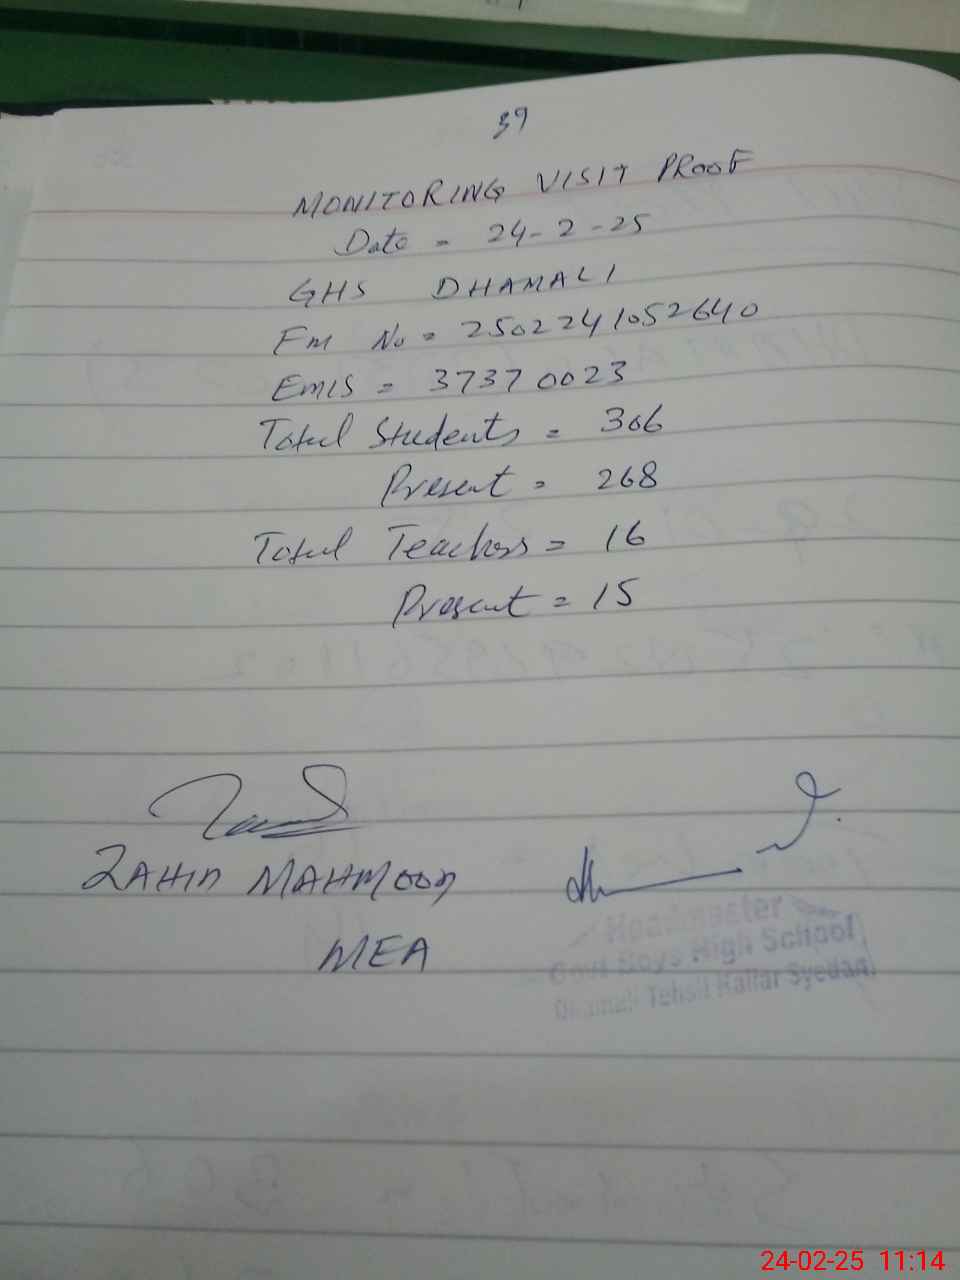 39
MONITORING VISIT PROOF
Date = 24-2-25
GHS DHAMALI
Fm No = 2502241052640
EMIS = 37370023
Total Students = 306
Present = 268
Total Teachers = 16
Present = 15
ZAHID MAHMOOD
MEA
Headmaster
Govt Boys High School
Dhamali Tehsil Kallar Syedan
24-02-25 11:14